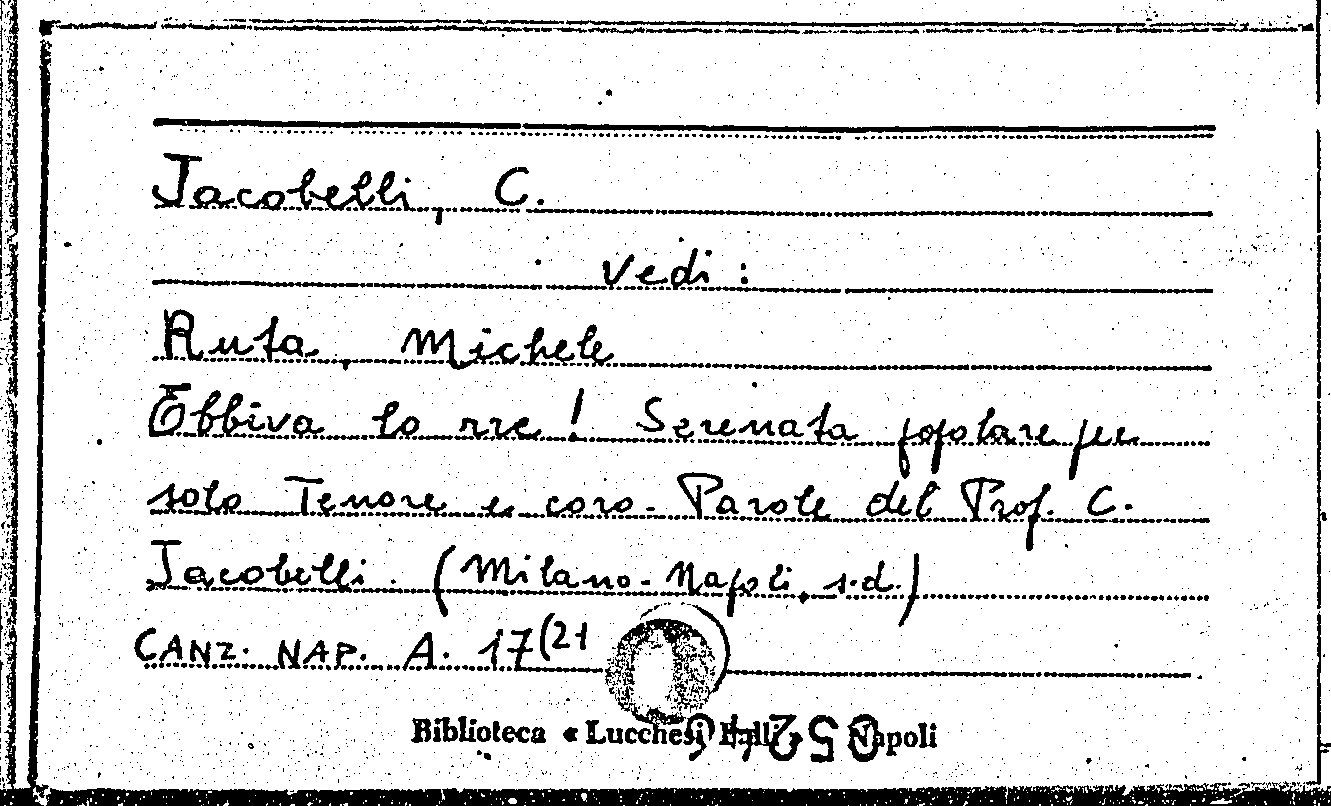 Jacobelli, C.
vedi :
Ruta, Michele
Ebbiva lo rre! Serenata popolare per
solo Tenore e coro. Parole del Prof. C.
Jacobelli. (Milano-Napoli, s.d.)
CANZ. NAP. A. 17(21
Biblioteca « Lucchesi Palli » Napoli